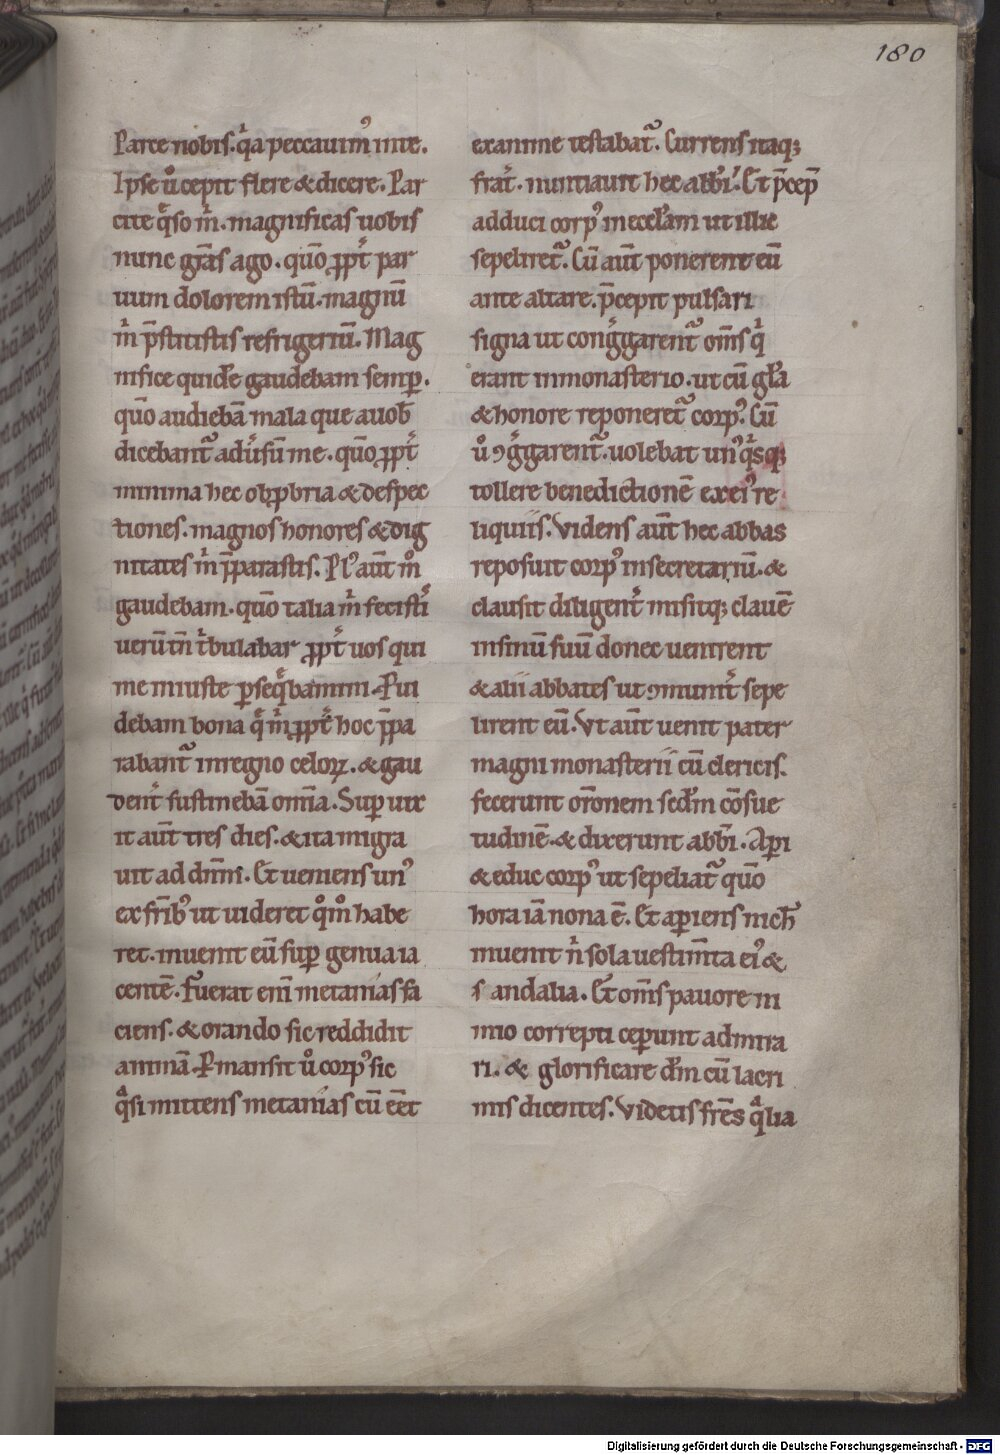 180
Parce nobis. qͥa peccauimꝰ inte.
Ipse u̾ cepit flere & dicere. Par
cite q̄so m̍. magnificas uobis
nunc gr̄as ago. quō ꝓpt̍ par
uum dolorem istū. magnū
m̍ p̄stitistis refrigeriū. Mag
nifice quidē gaudebam semꝑ.
quō audiebā mala que auob̄
dicebant᷑ adu̍sū me. quō ꝓpt̍
minima hec obꝓbria & despec
tiones. magnos honores & dig
nitates m̍ p̄parastis. Plꝰ aūt
gaudebam. quō talia m̍ fecisti
uerūtn̄ t̍bulabar ꝓpt̍ uos qui
me iniuste ꝑseq̄bamini. Pui
debam bona q̄ m̍ ꝓpt̍ hoc p̄pa
rabant᷑ inregno celoꝝ. & gau
dent̍ sustinebā omīa. Supuix
it aūt tres dies. & ita migra
uit ad dn̄m. Et ueniens unꝰ
ex fr̄ibꝰ ut uideret qͦmͦ habe
ret. inuenit eū suꝑ genua ia
centē. Fuerat enī metanias fa
ciens. & orando sic reddidit
animā. Ꝑmansit u̾ corpꝰ sic
qͣsi mittens metanias cū eēt
exanime testabat᷑. Currens itaqꝫ
frat̍. nuntiauit hec abb̄i. Et p̄cep̄
adduci corpꝰ inecclām ut illic
sepeliret᷑. Cū aūt ponerent eū
ante altare. p̄cepit pulsari
signa ut congͤgarent᷑ om̄s qͥ
erant inmonasterio. ut cū gl̄a
& honore reponeret᷑ corpꝰ. Cū
u̾ ꝯgͤgarent᷑. uolebat unꝰqͥsqꝫ
tollere benedictionē exeiꝰ re
liquiis. Videns aūt hec abbas
reposuit corpꝰ insecretariū. &
clausit diligent̍ misitqꝫ clauē
insinū suū donec uenirent
& alii abbates ut ꝯmunit̍ sepe
lirent eū. Vt aūt uenit pater
magni monasterii cū clericis.
fecerunt or̄onem scd̄m cōsue
tudinē. & dixerunt abb̄i. Aꝑi
& educ corpꝰ ut sepeliat᷑ quō
hora iā nona ē. Et aꝑiens nich̄
inuenit n̍ sola uestim̄ta eiꝰ &
s andalia. Et om̄s pauore ni
mio correpti ceꝑunt admira
ri. & glorificare dm̄ cū lacri
mis dicentes. Videtis fr̄es qͣlia
Digitalisierung gefördert durch die Deutsche Forschungsgemeinschaft - DFG